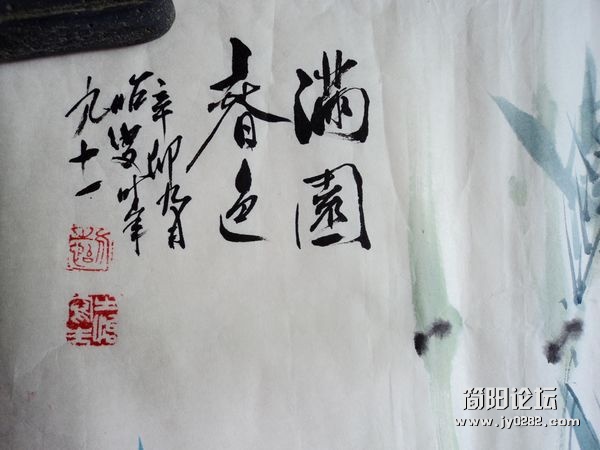 滿園
春色
辛卯九月
時年
九十一
简阳论坛
www.jy0282.com